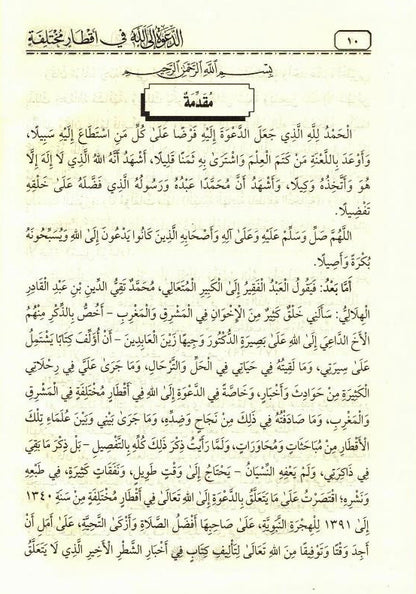 الدَّعْوَةُ إِلَى اللهِ فِي أَقْطَارٍ مُخْتَلِفَةٍ
١٠
بِسْمِ اللهِ الرَّحْمٰنِ الرَّحِيْمِ
مُقَدِّمَةٌ
الْحَمْدُ لِلَّهِ الَّذِي جَعَلَ الدَّعْوَةَ إِلَيْهِ فَرْضًا عَلَىٰ كُلِّ مَنِ اسْتَطَاعَ إِلَيْهِ سَبِيلًا،
وَأَوْعَدَ بِاللَّعْنَةِ مَنْ كَتَمَ الْعِلْمَ وَاشْتَرَىٰ بِهِ ثَمَنًا قَلِيلًا، أَشْهَدُ أَنَّهُ اللهُ الَّذِي لَا إِلَٰهَ إِلَّا
هُوَ وَأَتَّخِذُهُ وَكِيلًا، وَأَشْهَدُ أَنَّ مُحَمَّدًا عَبْدُهُ وَرَسُولُهُ الَّذِي فَضَّلَهُ عَلَىٰ خَلْقِهِ
تَفْضِيلًا.
اللَّهُمَّ صَلِّ وَسَلِّمْ عَلَيْهِ وَعَلَىٰ آلِهِ وَأَصْحَابِهِ الَّذِينَ كَانُوا يَدْعُونَ إِلَى اللهِ وَيُسَبِّحُونَهُ
بُكْرَةً وَأَصِيلًا.
أَمَّا بَعْدُ: فَيَقُولُ الْعَبْدُ الْفَقِيرُ إِلَى الْكَبِيرِ الْمُتَعَالِي، مُحَمَّدٌ تَقِيُّ الدِّينِ بْنِ عَبْدِ الْقَادِرِ
الْهِلَالِيُّ: سَأَلَنِي خَلْقٌ كَثِيرٌ مِنَ الْإِخْوَانِ فِي الْمَشْرِقِ وَالْمَغْرِبِ – أَخُصُّ بِالذِّكْرِ مِنْهُمُ
الْأَخَ الدَّاعِيَ إِلَى اللهِ عَلَىٰ بَصِيرَةٍ الدُّكْتُورَ وَجِيهًا زَيْنَ الْعَابِدِينَ – أَنْ أُؤَلِّفَ كِتَابًا يَشْتَمِلُ
عَلَىٰ سِيرَتِي، وَمَا لَقِيتُهُ فِي حَيَاتِي فِي الْحَلِّ وَالتَّرْحَالِ، وَمَا جَرَىٰ عَلَيَّ فِي رِحْلَاتِي
الْكَثِيرَةِ مِنْ حَوَادِثَ وَأَخْبَارٍ، وَخَاصَّةً فِي الدَّعْوَةِ إِلَى اللهِ فِي أَقْطَارٍ مُخْتَلِفَةٍ فِي الْمَشْرِقِ
وَالْمَغْرِبِ، وَمَا صَادَفْتُهُ فِي ذَلِكَ مِنْ نَجَاحٍ وَضِدِّهِ، وَمَا جَرَىٰ بَيْنِي وَبَيْنَ عُلَمَاءِ تِلْكَ
الْأَقْطَارِ مِنْ مُبَاحَثَاتٍ وَمُحَاوَرَاتٍ، وَلَمَّا رَأَيْتُ ذِكْرَ ذَلِكَ كُلِّهِ بِالتَّفْصِيلِ – بَلْ ذِكْرَ مَا بَقِيَ
فِي ذَاكِرَتِي، وَلَمْ يَعْفِهِ النِّسْيَانُ – يَحْتَاجُ إِلَىٰ وَقْتٍ طَوِيلٍ، وَنَفَقَاتٍ كَثِيرَةٍ، فِي طَبْعِهِ
وَنَشْرِهِ؛ اقْتَصَرْتُ عَلَىٰ مَا يَتَعَلَّقُ بِالدَّعْوَةِ إِلَى اللهِ تَعَالَىٰ فِي أَقْطَارٍ مُخْتَلِفَةٍ مِنْ سَنَةِ ١٣٤٠
إِلَىٰ ١٣٩١ لِلْهِجْرَةِ النَّبَوِيَّةِ، عَلَىٰ صَاحِبِهَا أَفْضَلُ الصَّلَاةِ وَأَزْكَى التَّحِيَّةِ، عَلَىٰ أَمَلِ أَنْ
أَجِدَ وَقْتًا وَتَوْفِيقًا مِنَ اللهِ تَعَالَىٰ لِتَأْلِيفِ كِتَابٍ فِي أَخْبَارِ الشَّطْرِ الْأَخِيرِ الَّذِي لَا يَتَعَلَّقُ